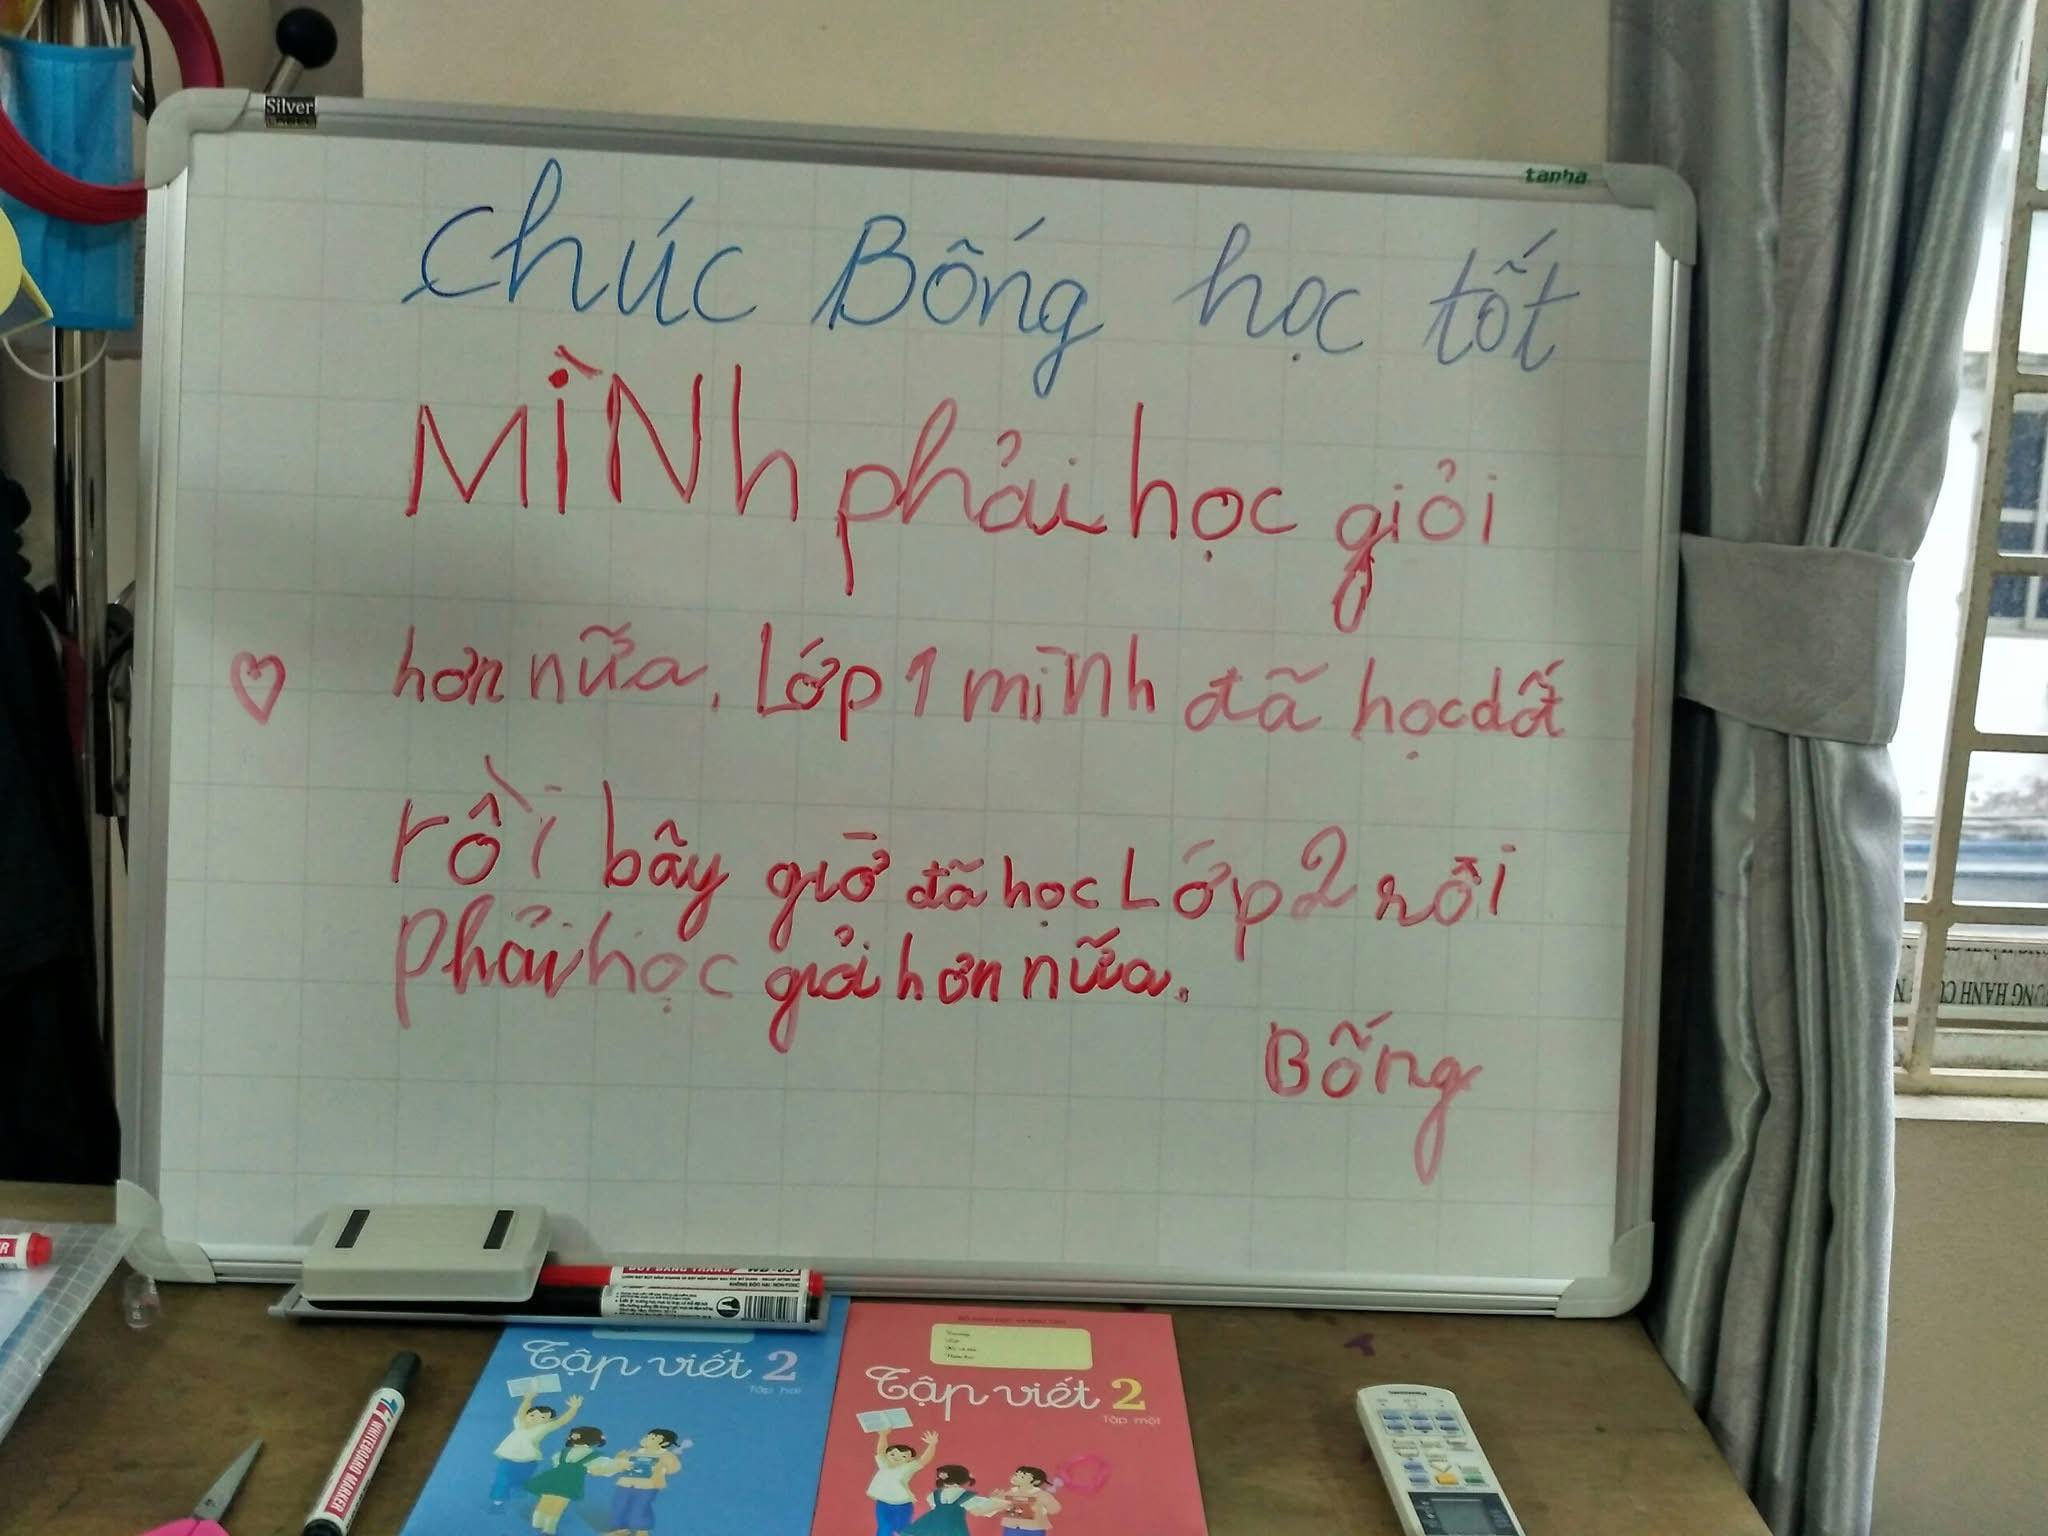 Silver
LABEL
tanha
Chúc Bống học tốt
MÌNh phải học giỏi
hơn nữa. Lớp 1 mình đã học dất
rồi bãy giờ đã học Lớp 2 rồi
Phải học giỏi hơn nữa.
Bống
BÚT BẢNG TRẮNG WB-03
WHITEBOARD MARKER
Tập viết 2
Tập hai
Tập viết 2
Tập một
Panasonic